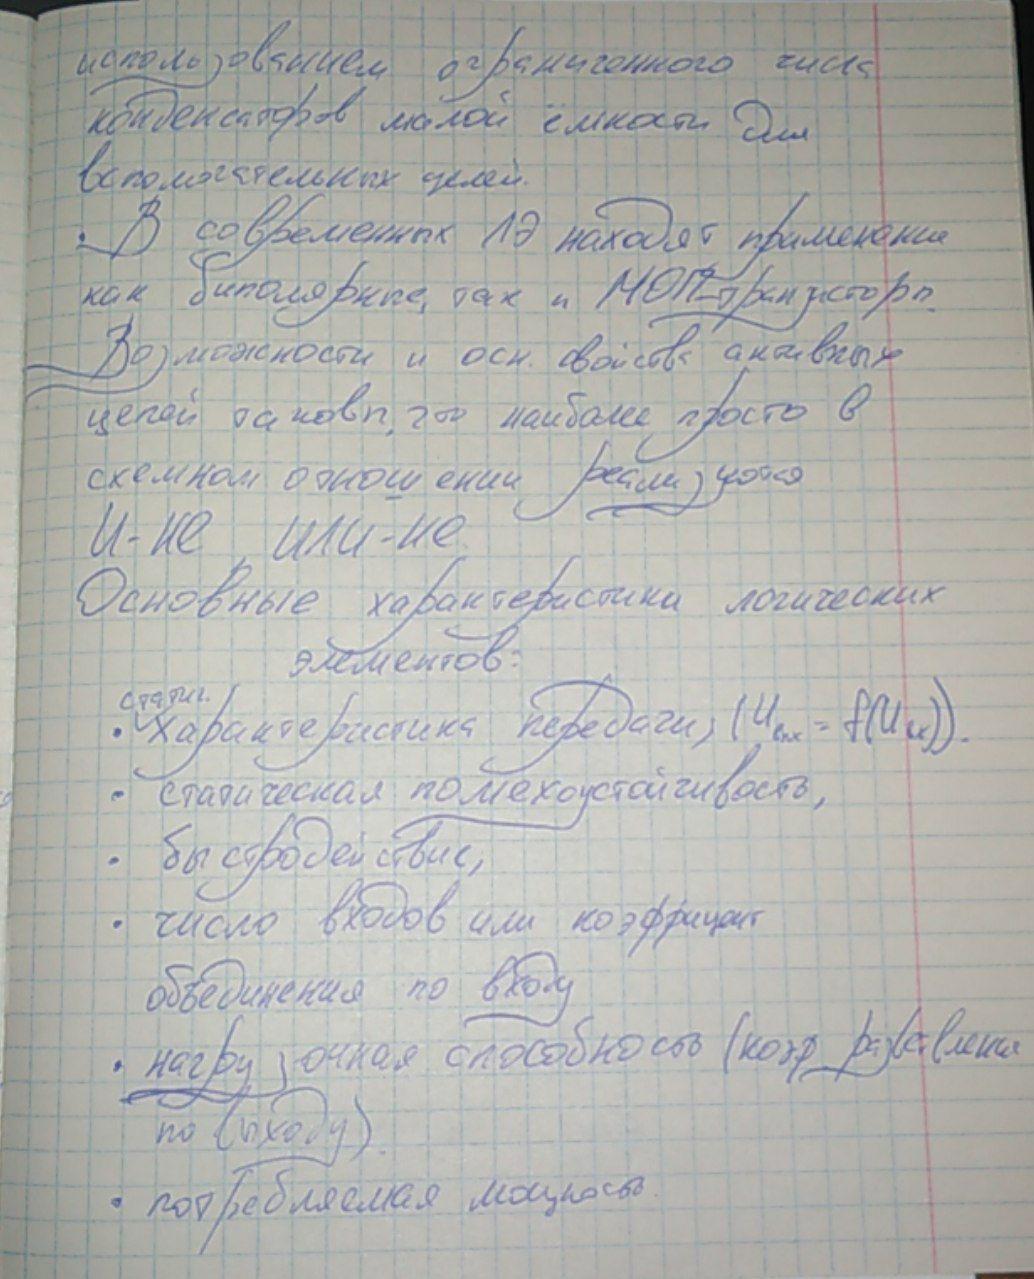 использованием ограниченного числа
конденсаторов малой ёмкости для
вспомогательных целей.
· В современных ЛЭ находят применение
как биполярные, так и МОП-транзисторы.
Возможности и осн. свойства активных
цепей таковы, что наиболее просто в
схемном отношении реализуются
И-НЕ, ИЛИ-НЕ.
Основные характеристики логических
элементов:
статич.
· характеристика передачи, (Uвых = f(Uвх)).
· статическая помехоустойчивость,
· быстродействие,
· число входов или коэффициент
объединения по входу
· нагрузочная способность (коэф разветвления
по выходу).
· потребляемая мощность.